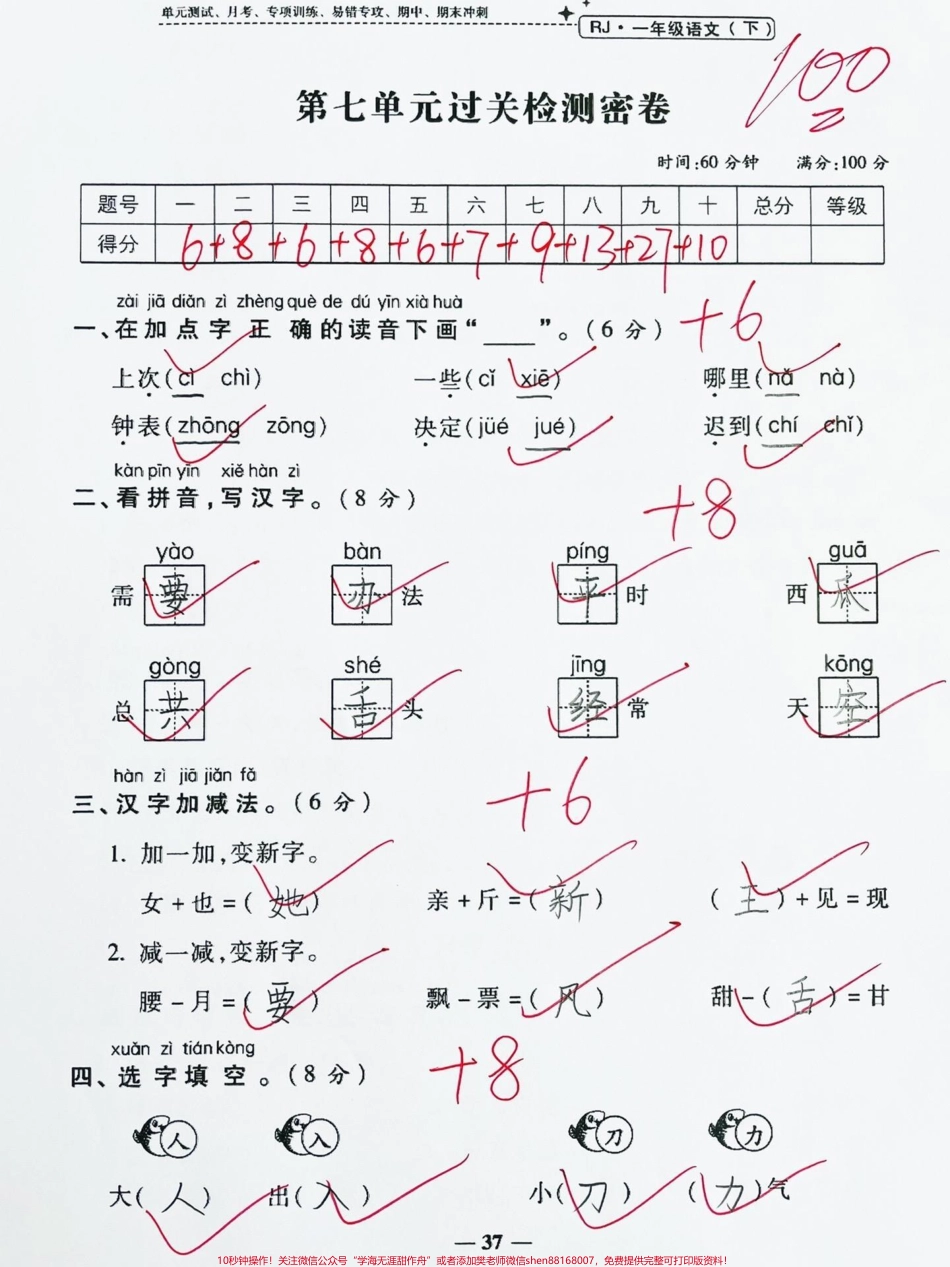 单元测试、月考、专项训练、易错专攻、期中、期末冲刺
RJ·一年级语文(下)
100
第七单元过关检测密卷
时间:60分钟 满分:100分
题号 一 二 三 四 五 六 七 八 九 十 总分 等级
得分 6+8+6+8+6+7+9+13+27+10
zài jiā diǎn zì zhèng què de dú yīn xià huà
一、在加点字正确的读音下画“____”。(6分) +6
上次(cì chì) 一些(cǐ xiē) 哪里(nǎ nà)
钟表(zhōng zōng) 决定(jüé jué) 迟到(chí chǐ)
kàn pīn yīn xiě hàn zì
二、看拼音,写汉字。(8分) +8
yào bàn píng guā
需要 办法 平时 西瓜
gòng shé jīng kōng
总共 舌头 经常 天空
hàn zì jiā jiǎn fǎ
三、汉字加减法。(6分) +6
1. 加一加,变新字。
女+也=(她) 亲+斤=(新) (王)+见=现
2. 减一减,变新字。
腰-月=(要) 飘-票=(风) 甜-(舌)=甘
xuǎn zì tián kòng
四、选字填空。(8分) +8
人 入 刀 力
大(人) 出(入) 小(刀) (力)气
— 37 —
10秒钟操作!关注微信公众号“学海无涯甜作舟”或者添加樊老师微信shen88168007,免费提供完整可打印版资料!